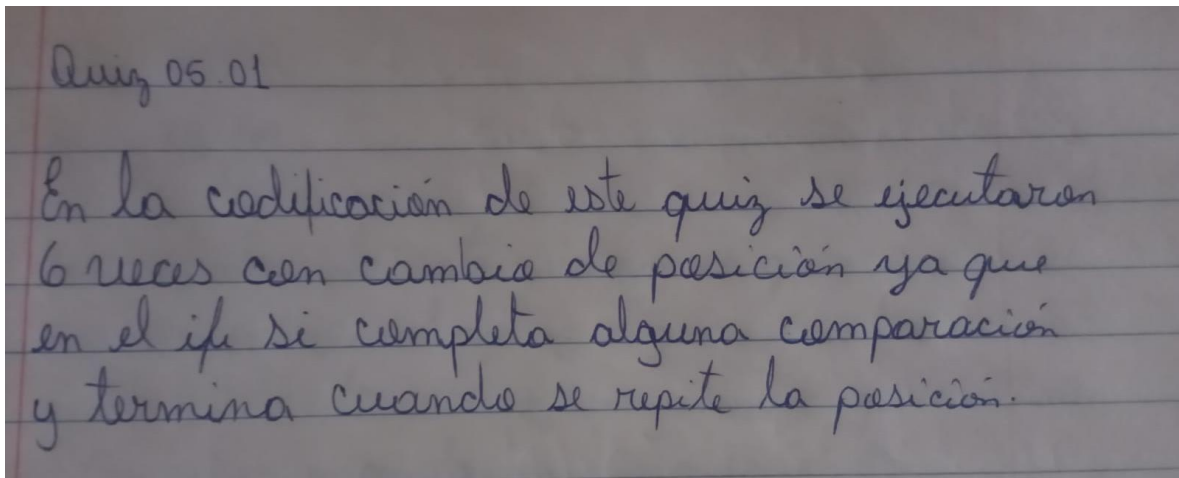 Quiz 05.01
En la codificación de este quiz se ejecutaron
6 veces con cambio de posición ya que
en el if si completa alguna comparación
y termina cuando se repite la posición.